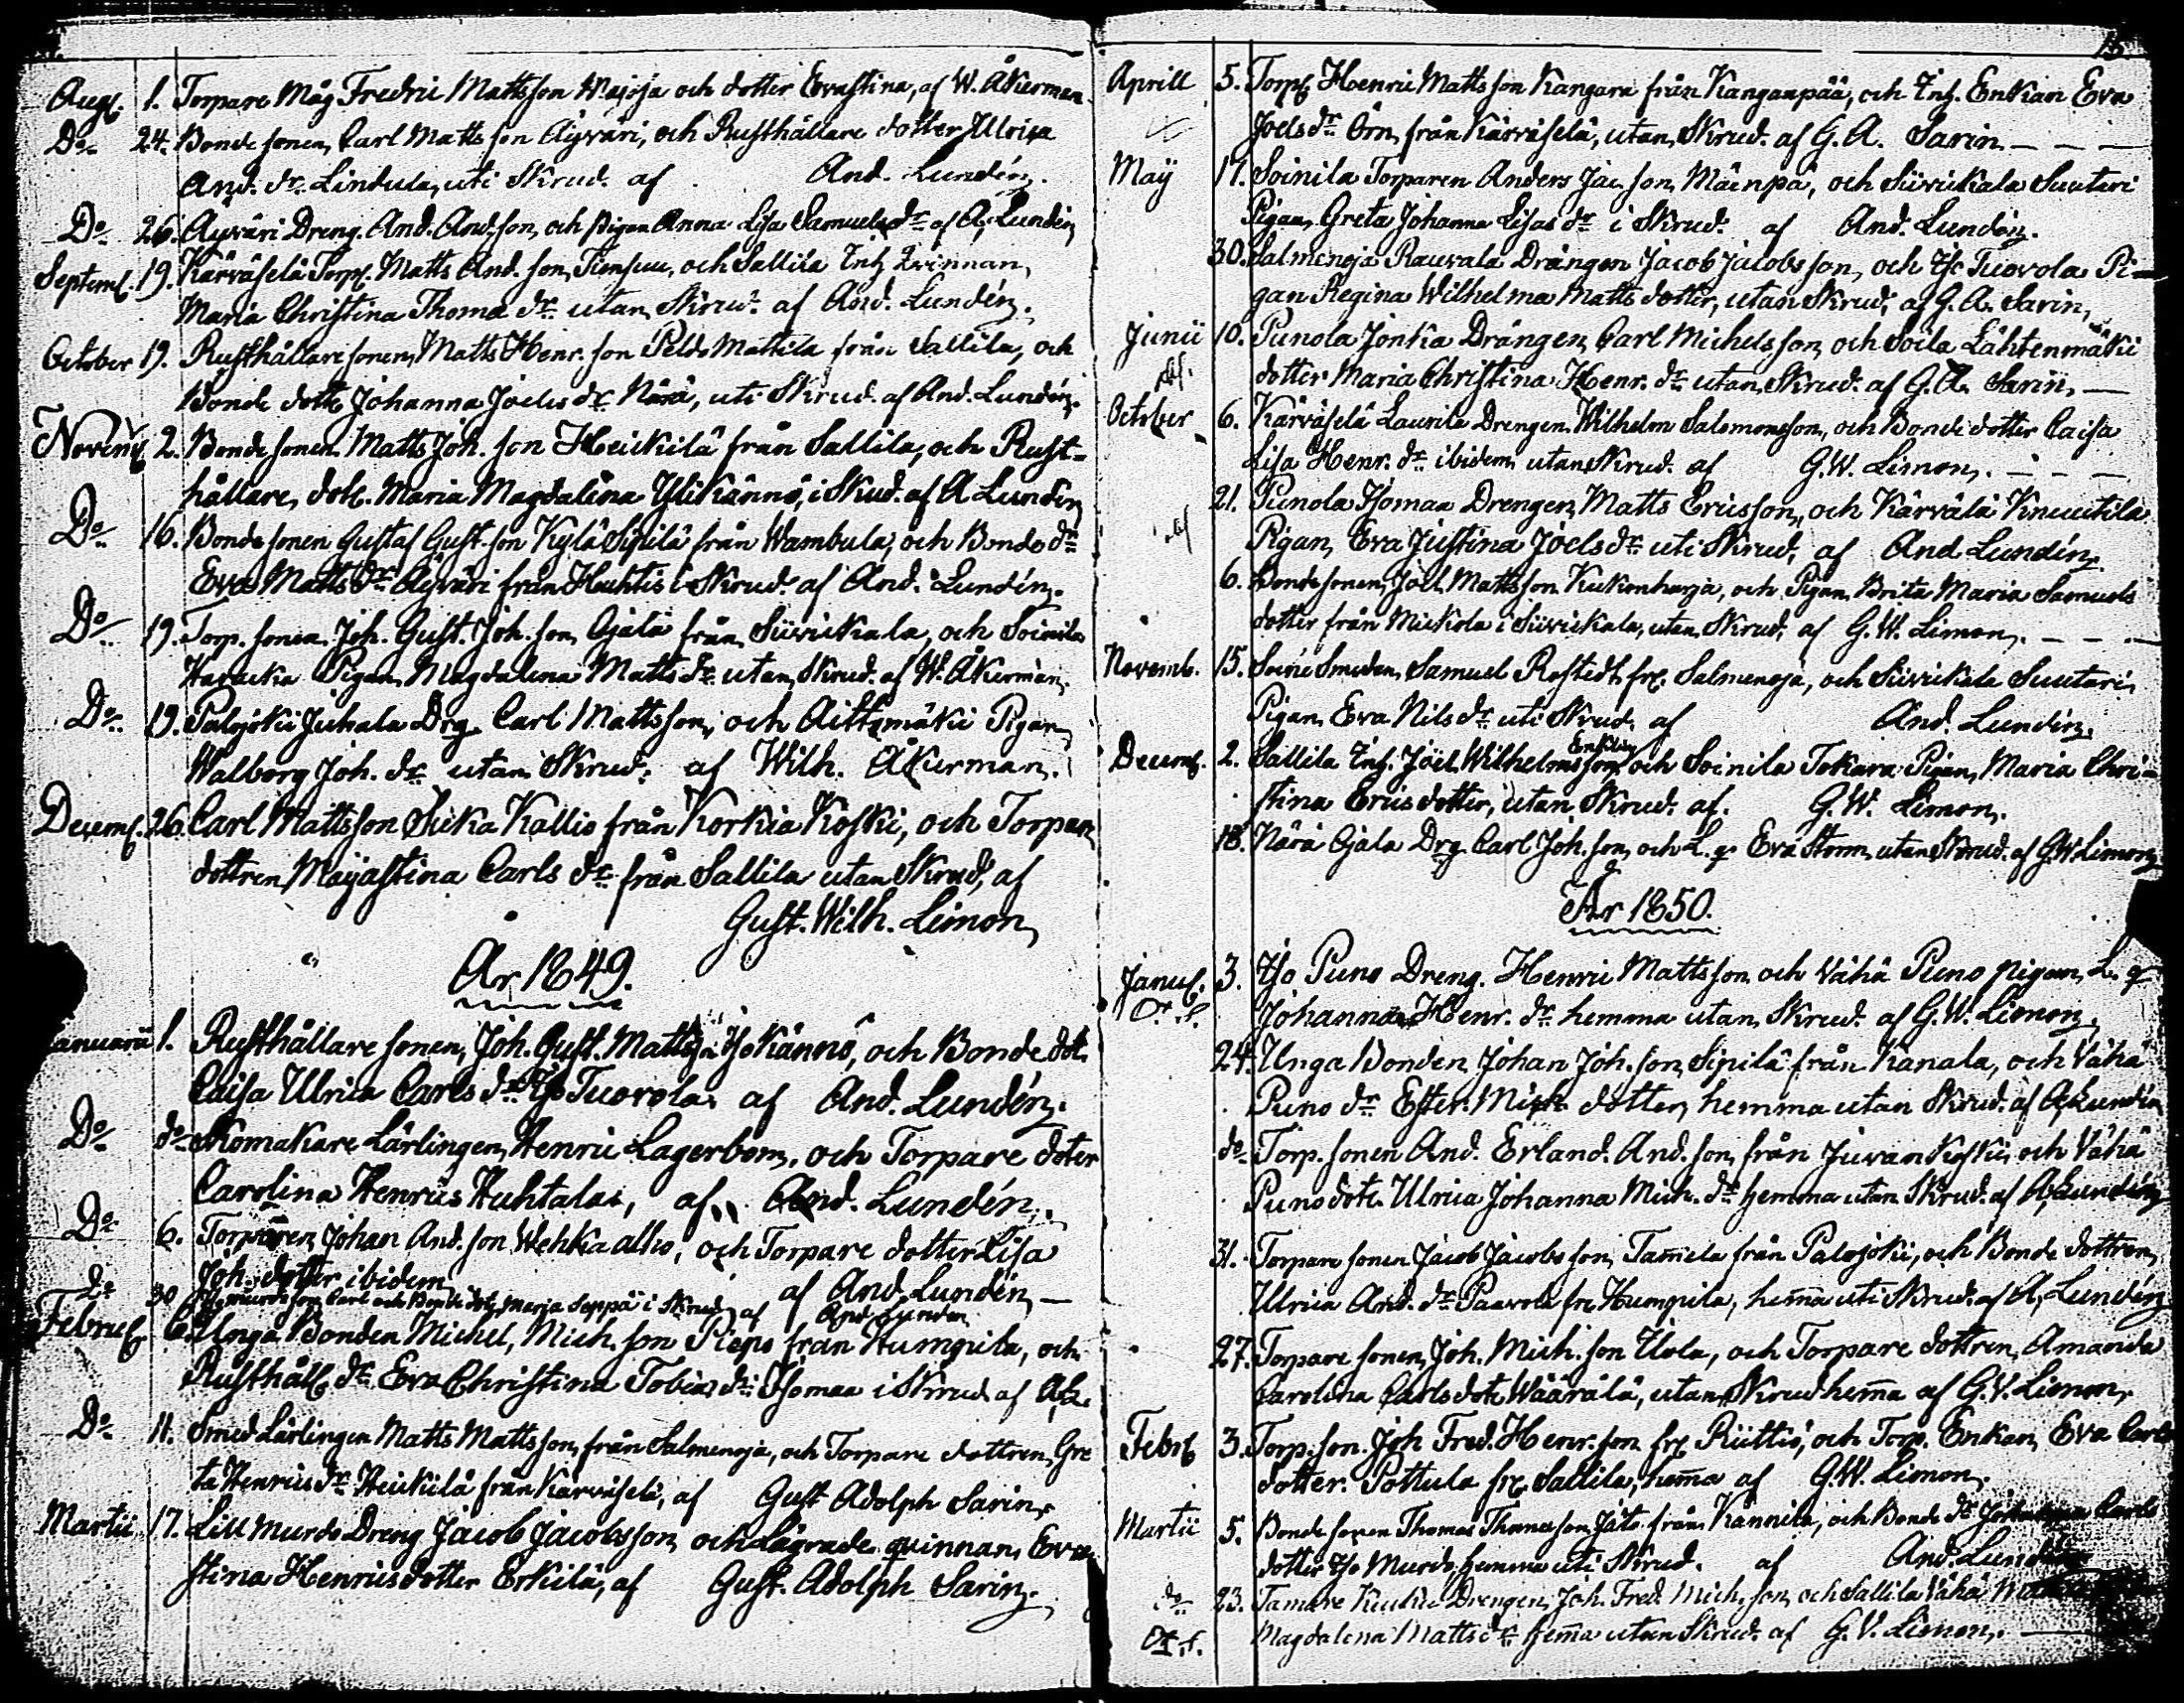 Aug. 1. Torpare Måg Fredric Mattsson och dotter Evastina, af W. Åkerman
Do 24. Bonde sonen Carl Matts son Äyväri, och Rusthållare dotter Ulrica
And. dr. Lindula, uti Skrud. af And. Lundén.
Do 26. Äyväri Dreng. And. And. son, och pigan Anna Lisa Samuels dr af A. Lundén
Septemb. 19. Kärväselä Torp. Matts And. son, och Sallila Inh. qvinnan,
Maria Christina Thoma dr. utan Skrud. af And. Lundén.
October 19. Rusthållare sonen, Matts Henr. son Peldo Mattila från Sallila, och
Bonde dott. Johanna Joels dr. Närä, uti Skrud. af And. Lundén.
Novemb. 2. Bonde sonen Matts Joh. son Heickilä från Sallila, och Rust-
hållare, dott. Maria Magdalena Ylikännö, i Skrud. af A Lundén
Do 16. Bonde sonen Gustaf Gust. son Kylä Sipilä från Wambula, och Bonde dr
Eva Matts dr Äyväri från Huhtis i Skrud. af And. Lundén.
Do 19. Torp. sonen Joh. Gust. Joh. son Ojala från Siivickala, och Soinila
Pigan Magdalena Matts dr. utan Skrud. af W. Åkerman.
Do 19. Palojoki Juhala Drg. Carl Mattsson, och Aittamäki Pigan
Walborg Joh. dr utan Skrud. af Wilh. Åkerman.
Decemb. 26. Carl Mattsson Sicka Kallio från Korkia Koski, och Torpare
dottren Mayastina Carls dr från Sallila utan Skrud, af
Gust. Wilh. Limon
År 1849.
Januarii 1. Rusthållare sonen, Joh. Gust. Matts. Iso Kännö, och Bonde dot.
Caisa Ulrica Carls dr Iso Tuorola af And. Lundén.
Do do Skomakare Lärlingen, Henric Lagerbom, och Torpare doter
Carolina Henrics Huhtala, af And. Lundén.
Do 6. Torparen Johan And. son Wehkakallio, och Torpare dotter Lisa
Joh. dotter ibidem af And. Lundén —
do 30 son Carl och Bonde dot. Maria Seppä i Skrud af And. Lundén
Februar. 6. Unga Bonden Michel, Mich. son Piepo från Humpila, och
Rusthåll. dr Eva Christina Tobias dr Isomaa i Skrud af A.L.
Do 11. Smed Lärlingen Matts Mattsson, från Salmenoja, och Torpare dottren, Gre
ta Henrics dr Heickilä från Kärväselä, af Gust Adolph Sarin.
Martii 17. Lill Murdo Dreng Jacob Jacobsson och Lägrade qvinnan, Eva
stina Henrics dotter Erkilä, af Gust. Adolph Sarin.
Aprill 5. Torp. Henric Matts son Kangara från Kanganpää, och Inh. Enkan Eva
Joels dr. Örn, från Kärväselä, utan Skrud. af G. A. Sarin. — — —
Maÿ 17. Soinila Torparen Anders Jac. son Mäenpä, och Siivickala Suutari
Pigan, Greta Johanna Lisas dr i Skrud. af And. Lundén.
30. Salmenoja Rauvala Drängen Jacob Jacobsson, och Iso Tuovola Pi-
gan Regina Wilhelmina Matts dotter, utan Skrud, af G. A. Sarin,
Junii 10. Punola Jonka Drängen, Carl Michelsson, och Soila Lähtenmäki
dotter Maria Christina Henr. dr. utan Skrud. af G. A. Sarin, —
October 6. Kärväselä Laurila Drengen, Wilhelm Salomonsson, och Bonde dotter Caisa
Lisa Henr. dr. ibidem utan Skrud. af G. W. Limon. — — —
21. Punola Isomaa Drengen Matts Ericsson, och Kärvälä Knuutila
Pigan, Eva Justina Joels dr uti Skrud, af And Lundén.
6. Bonde sonen, Joel Mattsson Kukonharja, och Pigan Brita Maria Samuels
dotter från Mickola i Siivickala, utan Skrud. af G. W. Limon. — — —
Novemb. 15. Smeden, Samuel Rostedt fr. Salmenoja, och Siivickala Suutari
Pigan Eva Nils dr uti Skrud. af And. Lundén.
Decemb. 2. Sallila Inh. Enkling Joel Wilhelmsson och Soinila Tokara Pigan, Maria Chri-
stina Ericsdotter, utan Skrud. af G. W. Limon.
18. Närä Ojala Drg. Carl Joh. son, och L. q. Eva Storm, utan Skrud. af G.W. Limon
År 1850.
Januar. 3. Iso Puno Dreng. Henric Mattsson och Vähä Puno pigan, L. q
Johanna Henr. dr. hemma utan Skrud. af G. W. Limon
24. Unga Bonden Johan Joh. son Sipilä från Kanala, och Vähä
Puno dr Ester Mich dotter hemma utan Skrud. af A. Lundén
do Torp. sonen And. Erland. And. son, från Juvankoski, och Vähä
Puno dott. Ulrica Johanna Mich. dr hemma utan Skrud. af A. Lundén
31. Torpare sonen Jacob Jacobs son, Tamela från Palojoki, och Bonde dottren,
Ulrica And. dr Paavola fr. Humpila, hema uti Skrud. af A. Lundén
27. Torpare sonen, Joh. Mich. son Uola, och Torpare dottren, Amanda
Carolina Carls dot. Wäärälä, utan Skrud hema af G. V. Limon,
Febr. 3. Torp. son. Joh Fred. Henr. son fr. Riittiö, och Torp. Enkan, Eva Carls
dotter. Pottula fr. Sallila, hema af G. W. Limon.
Martii 5. Bonde sonen Thomas Thomasson Jäto från Kännilä, och Bonde dr Johanna Carls
dotter Iso Murdo, hemma uti Skrud. af And. Lundén
do 23. Drengen, Joh. Fred. Mich. son, och Sallila Vähä
Magdalena Matts dr. hema utan Skrud. af G. V. Limon. —